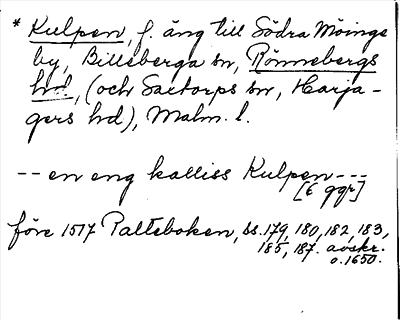 * Kulpen, f. äng till Södra Möinge
by, Billeberga sn, Rönnebergs
hd, (och Saxtorps sn, Harja-
gers hd), Malm. l.
-- en eng kalliss Kulpen ---
[6 ggr]
före 1517 Palteboken, ss. 179, 180, 182, 183,
185, 187. avskr.
o. 1650.